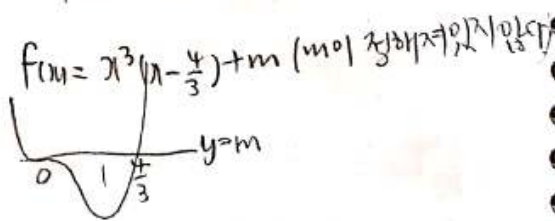 f(x)= x³(x-4/3)+m (m이 정해져있지 않다)
y=m
0 1 4/3